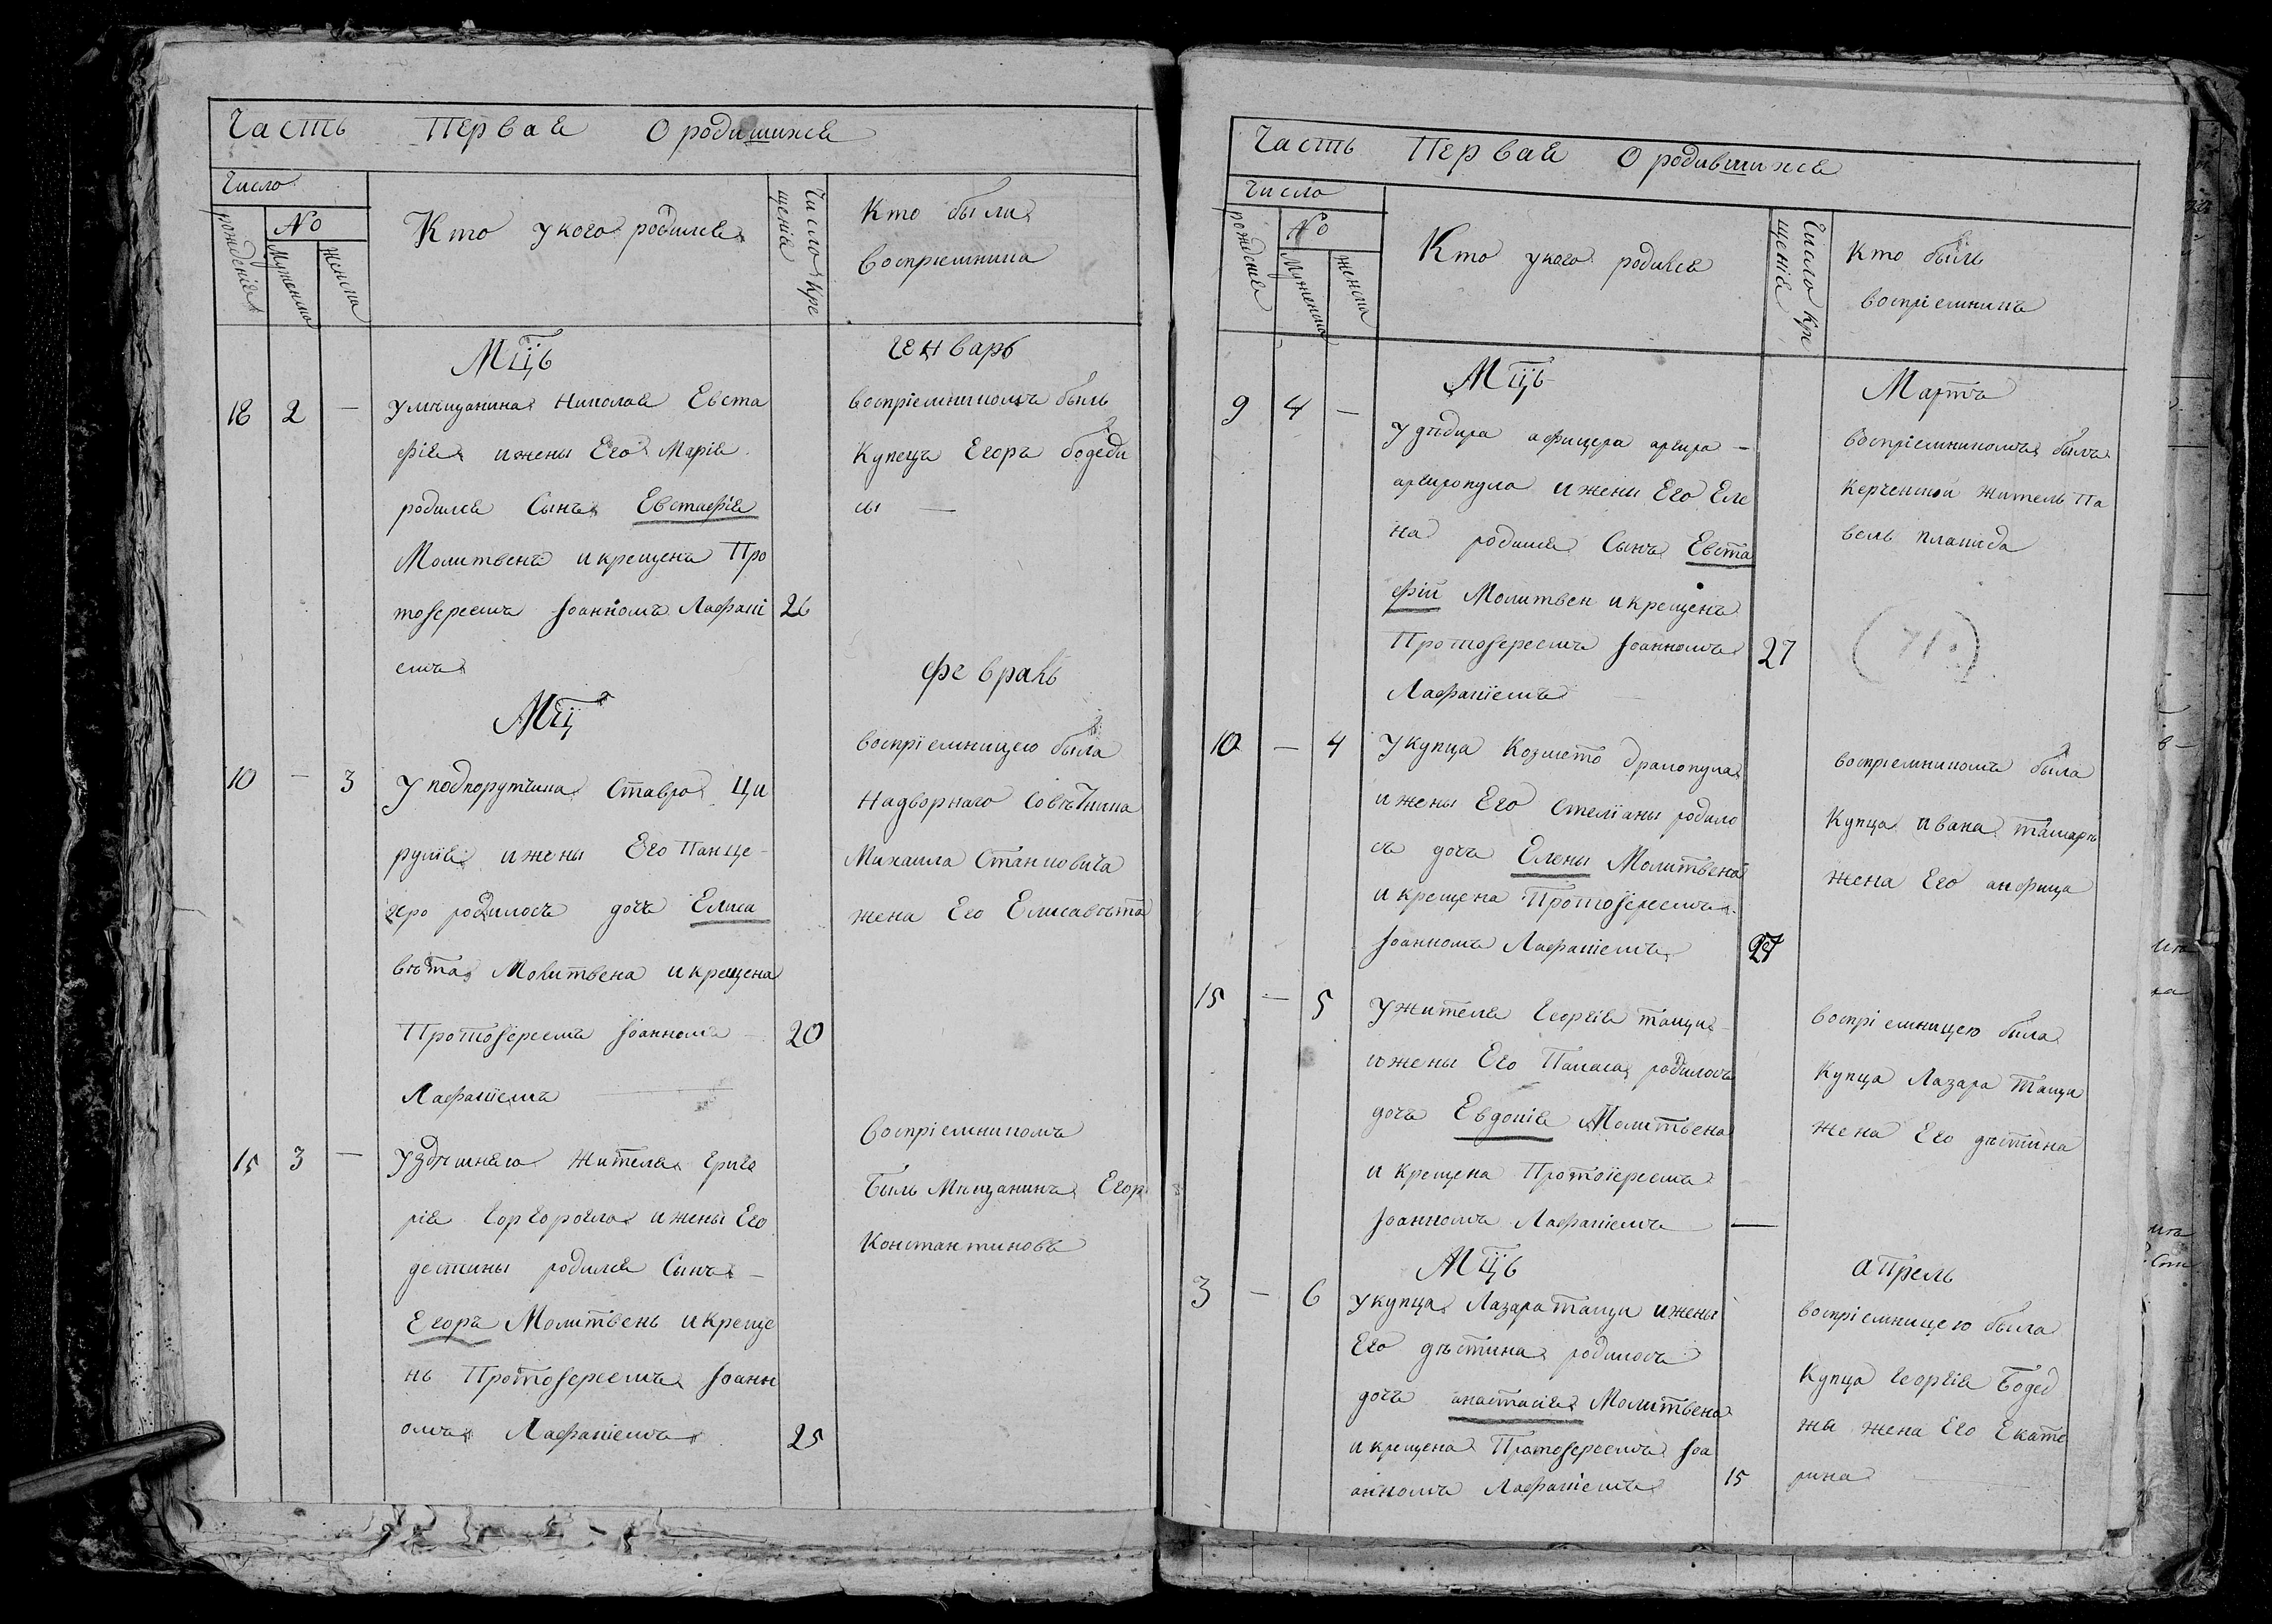 Часть Первая О родишихся
Число
рожденія
No
Мужеска
женска
Кто укого родился
Число Кре
щенія
Кто были
воспріемника
Мцъ
Генварь
18 2 —
умѣщанина Николая Евста
фія ижены Его Марія
родился Сынъ Евстафія
Молитвенъ икрещенъ Про
тоіереемъ Іоанномъ Лафані 26
емъ
воспріемникомъ былъ
Купецъ Егоръ бодеди
Мц
Февраль
10 — 3
У подпорутчика Ставро Ци
рулія ижены Его Панде
хро родилосъ дочъ Елиса
вѣта Молитвена икрещена
Протоіереемъ Іоанномъ — 20
Лафаніемъ
воспріемницею была
Надворнаго Совѣтника
Михаила Станковича
жена Его Елисавѣта
15 3 —
Уздѣшняго Жителя
ижены Его
дестины родился Сынъ —
Егоръ Молитвенъ икреще
нъ Протоіереемъ Іоанн
омъ Лафаніемъ 25
Воспріемникомъ
былъ Мѣщанинъ Егор
Константиновъ
Часть Первая О родившихся
Число
рожденія
No
Мужеска
женска
Кто укого родился
Число Кре
щенія
Кто былъ
воспріемникъ
Мцъ
Марта
9 4 —
афицера аргира —
аргиропула ижены Его Еле
на родился Сынъ Евста
фій Молитвен икрещенъ
Протоіереемъ Іоанномъ 27
Лафаніемъ
воспріемникомъ былъ
Керченской житель Па
велъ плакида
10 — 4
Укупца Козмето дракопула
ижены Его Стеліаны родило
съ дочъ Елены Молитвена
икрещена Протоіереемъ
Іоанномъ Лафаніемъ 27
воспріемникомъ была
Купца ивана
жена Его анфица
15 — 5
Ужителя Георгія тащи —
ижены Его Паласа родилосъ
дочъ Евдокія Молитвена
и крещена Протоіереемъ
Іоанномъ Лафаніемъ —
воспріемницею была
Купца Лазара Тащи
жена Его дѣстина
Мцъ
апрель
3 — 6
укупца Лазара тащи ижены
Его дѣстина родилосъ
дочъ анастасія Молитвена
икрещена Протоіереемъ Іоа
анномъ Лафаніемъ 15
воспріемницею была
Купца Георгія Бодед
жи жена Его Екате
рина